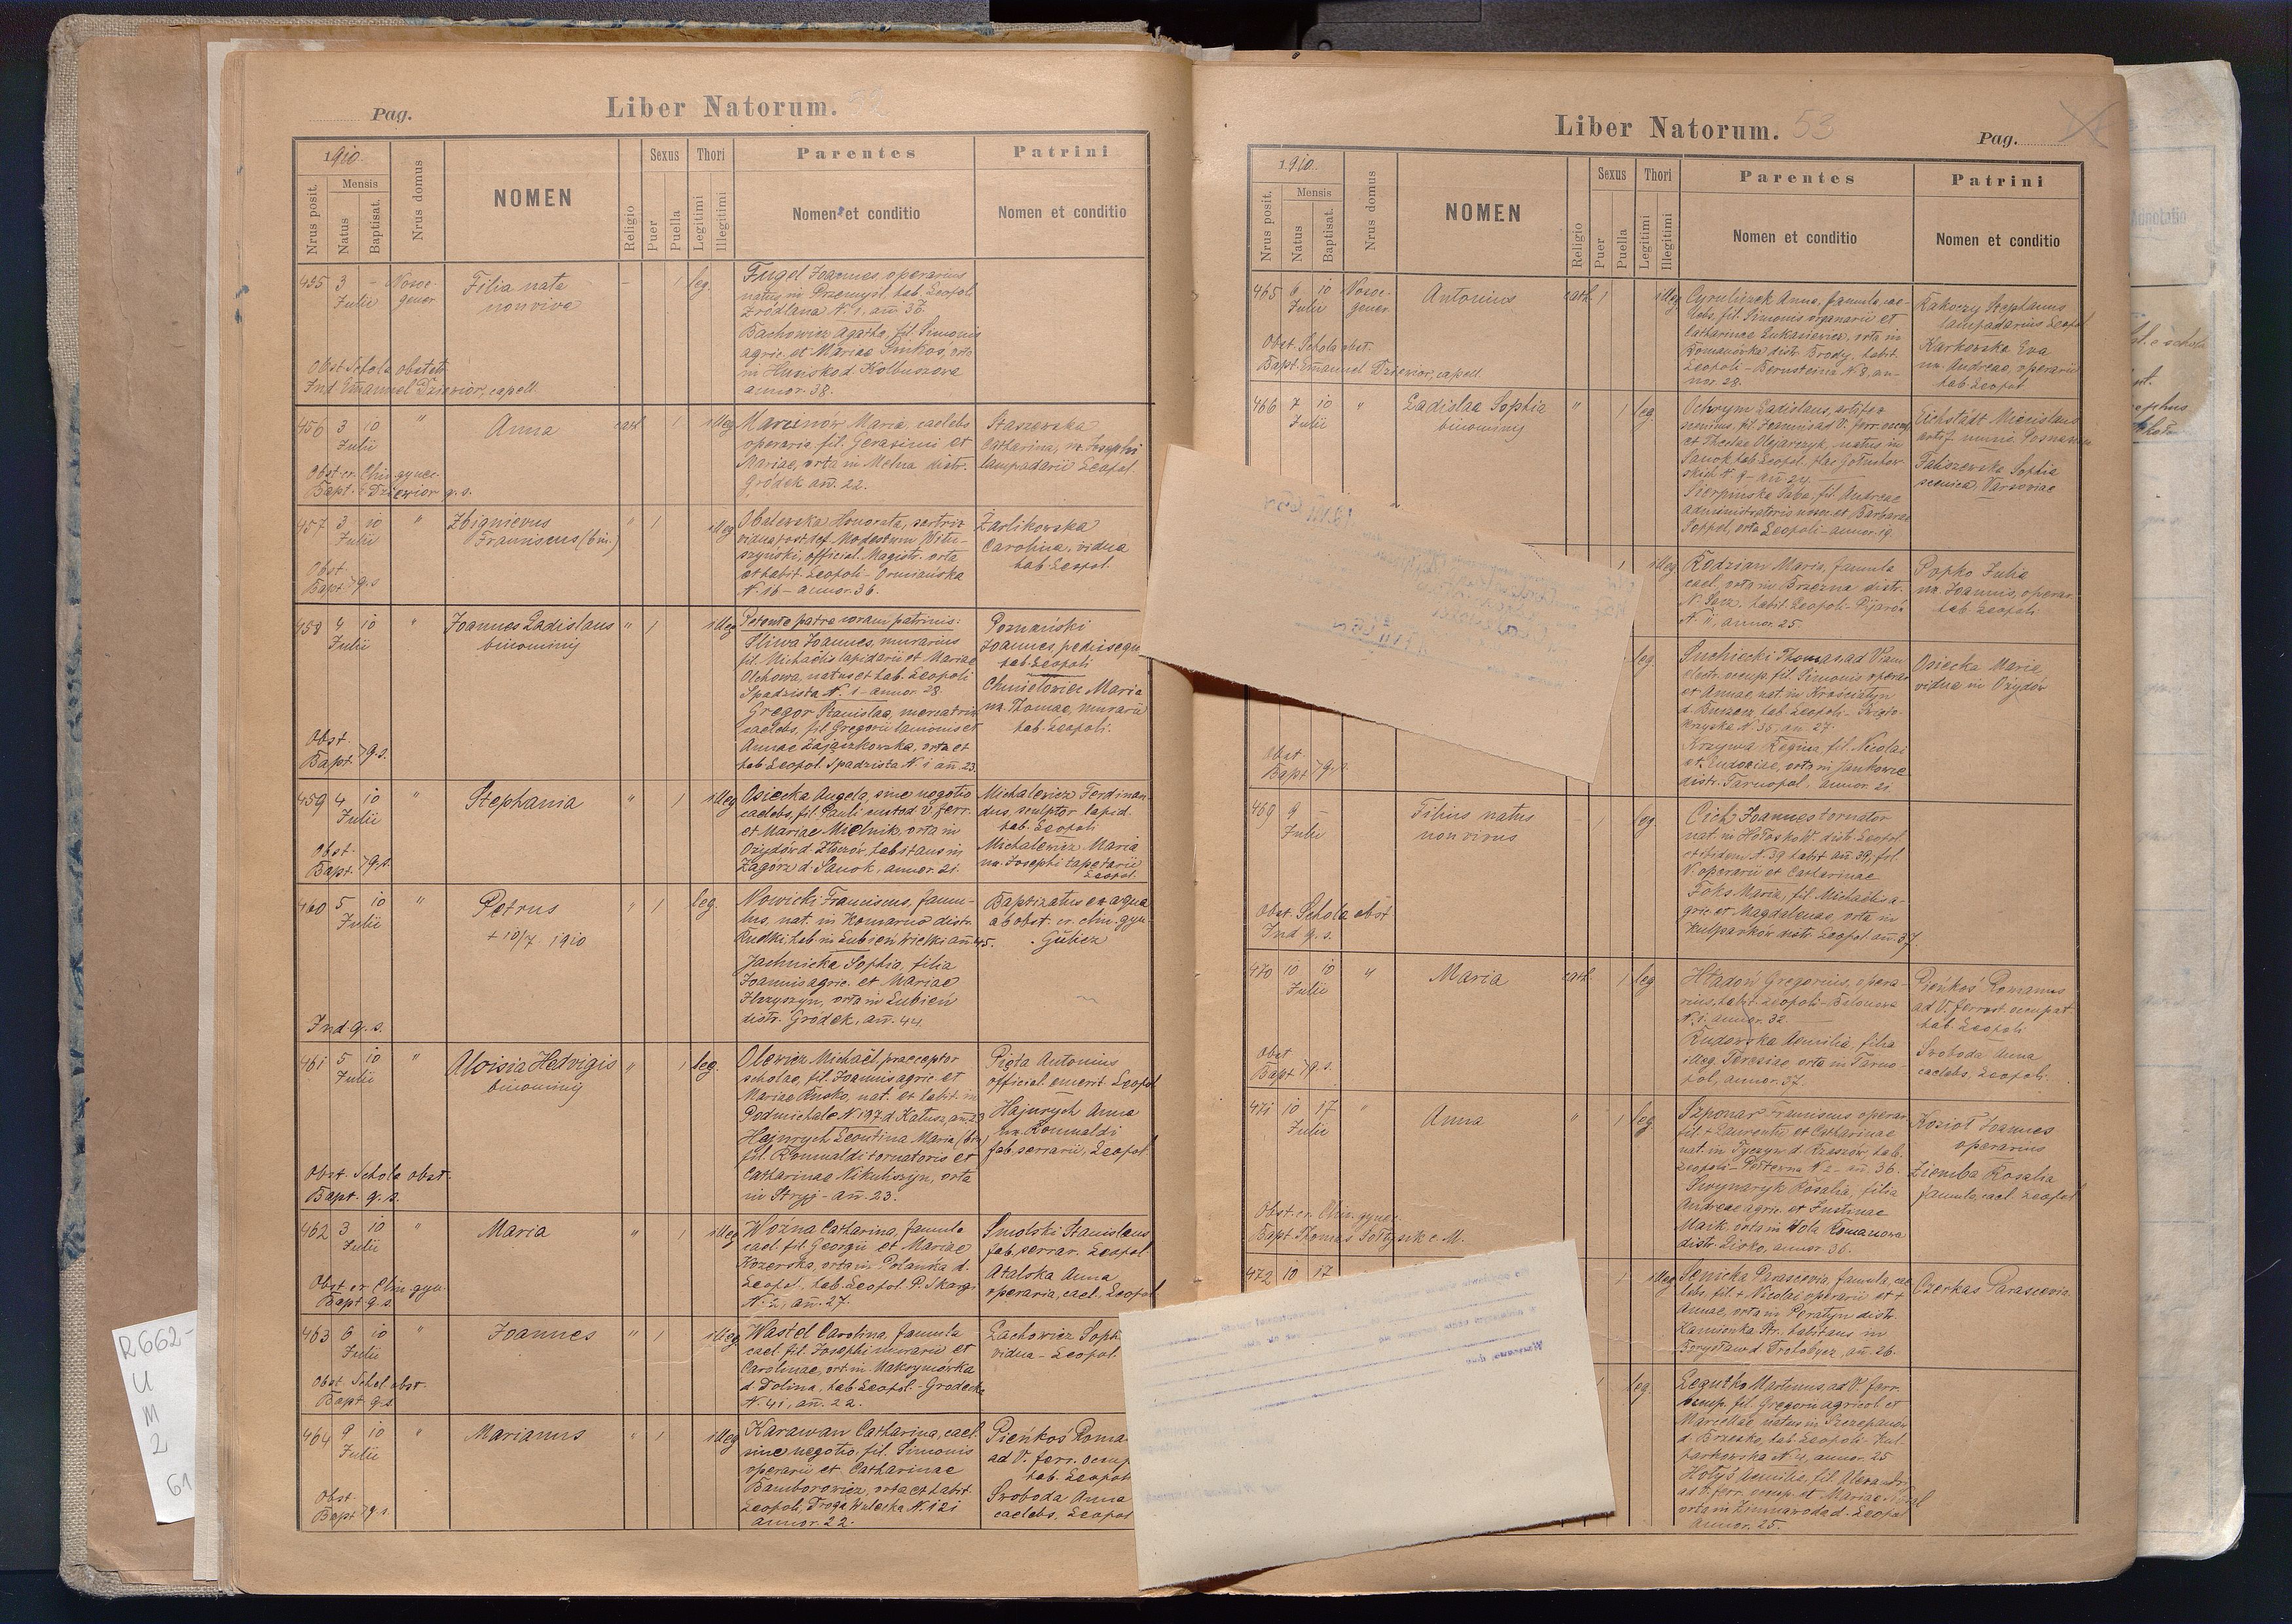 Pag.
Liber Natorum. 52
1910
Mensis
Nrus posit.
Natus
Baptisat.
Nrus domus
NOMEN
Religio
Sexus
Puer
Puella
Thori
Legitimi
Illegitimi
Parentes
Nomen et conditio
Patrini
Nomen et conditio
455 3 - Nosoc. Filia nata - 1 leg.
Julii gener. non viva
Fugel Joannes, operarius
natus in Przemyśl, hab. Leopol.
Źródlana N. 1, ann. 36.
Bachowicz Agatha, fil. Simonis
agric. et Mariae
annor. 38.
Obst. Schola obstetr.
Ind. Emanuel Dziewior, capell.
456 3 10 " Anna cath. 1 illeg.
Julii
Marcinów Maria, caelebs
operaria, fil. Gerasimi et
Mariae, orta in Melna distr.
Gródek an. 22.
Staszewska
Catharina, ux. Josephi
lampadarii Leopol.
Obst. ex. Clin. gynec.
Bapt. E Dziewior q. s.
457 3 10 " Zbignievus " 1 illeg.
Julii Franciscus (bin.)
Obalewska Honorata, sartrix
vidua post def. Modestum Witu-
szyński, official. Magistr. orta
et habit. Leopoli - Ormiańska
N. 16 - annor. 36.
Żarlikowska
Carolina, vidua
hab. Leopol.
Obst.
Bapt. q. s.
458 4 10 " Joannes Ladislaus " 1 illeg.
Julii binominis
Petente patre coram patrinis:
Śliwa Joannes, murarius
fil. Michaëlis lapidarii et Mariae
Olchowa, natus et hab. Leopoli
Spadzista N. 1 - annor. 28.
Gregor Stanislaa, mercatrix
caelebs, fil. Gregorii lanionis et
Annae Zajączkowska, orta et
hab. Leopol. Spadzista N. 1 an. 23.
Poznański
Joannes, pedisequ
hab. Leopoli
Chmielowiec Maria
ux. Thomae, murarii
hab. Leopoli.
Obst.
Bapt. q. s.
459 4 10 " Stephania " 1 illeg.
Julii
Osiecka Angela, sine negotio
caelebs, fil. Pauli custod. v. ferr.
et Mariae Mielnik, orta in
Ożydów d. Złoczów, habitans in
Zagórz d. Sanok, annor. 21.
Michalewicz Ferdinan
dus, sculptor lapid.
hab. Leopoli
Michalewicz Maria
ux. Josephi tapetarii
Leopol.
Obst.
Bapt. q. s.
460 5 10 " Petrus " 1 leg.
Julii + 10/7 1910
Nowicki Franciscus, famu-
lus, nat. in Komarno distr.
Rudki, hab. in Lubień Wielki an. 45.
Jachnicka Sophia, filia
Joannis agric. et Mariae
Hryszyn, orta in Lubień
distr. Gródek, an. 44.
Baptizatus ex aqua
ab obst. ex. clin. gyn.
Gulicz
Ind. q. s.
461 5 10 " Aloisia Hedvigis " 1 leg.
Julii binominis
Olewicz Michaël, praeceptor
scholae, fil. Joannis agric. et
Mariae Rusko, nat. et habit. in
Podmichale N 197 d. Kałusz, an. 23
Hajnrych Leontina Maria (bin.)
fil. Romualdi tornatoris et
Catharinae Nikuliszyn, orta
in Stryj - an. 23.
Pięta Antonius
official. emerit. Leopol
Hajnrych Anna
ux. Romualdi
fab. serrarii, Leopol.
Obst. Schola obst.
Bapt. q. s.
462 3 10 " Maria " 1 illeg.
Julii
Woźna Catharina, famula
cael. fil. Georgii et Mariae
Kozerska, orta in Polanka d.
Leopol., hab. Leopol. P. Skargi
N. 2, an. 27.
Smolski Stanislaus
fab. serrar. Leopol
Atalska Anna
operaria, cael. Leopol
Obst. ex Clin. gyn.
Bapt. q. s.
463 6 10 " Joannes " 1 illeg.
Julii
Wastel Carolina, famula
cael. fil. Josephi murarii et
Carolinae, orta in Maksymówka
d. Dolina, hab. Leopol. - Grodecka
N. 41, an. 22.
Lachowicz Soph
vidua - Leopol.
Obst. Schol. obst.
Bapt. q. s
464 9 10 " Marianus " 1 illeg.
Julii
Karawan Catharina, cael.
sine negotio, fil. Simonis
operarii et Catharinae
Bamborowicz, orta et habit.
Leopoli, Droga Wulecka N. 121
annor. 22.
Pieńkoś Roma
ad V. ferr. occup
hab. Leopol
Svoboda Anna
caelebs, Leopol
Obst.
Bapt. q. s.
R662-
U
M
2
61
Liber Natorum. 53
Pag.
1910
Mensis
Nrus posit.
Natus
Baptisat.
Nrus domus
NOMEN
Religio
Sexus
Puer
Puella
Thori
Legitimi
Illegitimi
Parentes
Nomen et conditio
Patrini
Nomen et conditio
465 6 10 Nosoc. Antonius cath. 1 illeg.
Julii gener.
Cyruliczek Anna, famula, cae-
lebs, fil. Simonis organarii et
Catharinae Łukasiewicz, orta in
Romanówka distr. Brody, habit.
Leopoli - Bernsteina N. 8, an-
nor. 28.
Rakoczy Stephanus
lampadarius Leopol
Karkowska Eva
ux. Andreae, operarii
hab. Leopol.
Obst. Schola obst.
Bapt. Emanuel Dziewior, capell.
466 7 10 " Ladislaa Sophia " 1 leg.
Julii binominis
Ochrym Ladislaus, artifex
scenicus, fil. Joannis ad V. ferr. occup.
et Theclae Olejarczyk, natus in
Sanok, hab. Leopol. plac Gołuchow-
skich N. 9 - an. 24.
Sierpińska Saba, fil. Andreae
administratoris et Barbarae
Soppol, orta Leopoli - annor. 19.
Eichstädt Miecislaus
artif. munic. Posnan
Faliszewska Sophia
scenica, Varsoviae
1 illeg.
Rodzian Maria, famula
cael. orta in Brzezna distr.
N. Sącz, habit. Leopoli - Pijarów
N. 11, annor. 25.
Popko Julia
ux. Joannis, operar.
hab. Leopoli.
leg.
Suchiecki Thomas, ad Viam
electr. occup. fil. Simonis operar.
et Annae, nat. in Krościatyn
d. Buczacz, hab. Leopoli - Święto-
krzyska N. 35, an. 27.
Krzywa Regina, fil. Nicolai
et Eudoxiae, orta in Jankowce
distr. Tarnopol, annor. 21
Osiecka Maria
vidua in Ożydów
Obst.
Bapt. q. s.
469 9 - Filius natus - 1 leg.
Julii non vivus
Cich Joannes tornator
nat. in Hołosko W. distr. Leopol
et ibidem N. 39 habit. an. 39, fil.
N. operarii et Catharinae
Foks Maria, fil. Michaëlis a-
gric. et Magdalenae, orta in
Kulparków distr. Leopol. an. 37.
Obst. Schola obst.
Ind. q. s.
470 10 10 " Maria cath. 1 leg.
Julii
Hładoń Gregorius, opera-
rius, habit. Leopoli - Bilonowa
N. 1. annor. 32.
Rudowska Aemilia, filia
illeg. Teresiae orta in Tarno-
pol, annor. 37.
Pieńkoś Romanus
ad V. ferrat. occupat.
hab. Leopoli
Svoboda Anna
caelebs, Leopoli.
Obst.
Bapt. q. s.
471 10 17 " Anna " 1 leg.
Julii
Szponar Franciscus operar.
fil. + Laurentii et Catharinae
nat. in Tyczyn d. Rzeszów, hab.
Leopoli - Pełtewna N. 2 - an. 36.
Swynaryk Rosalia, filia
Andreae agric. et Justinae
Maik, orta in Wola Romanowa
distr. Lisko, annor. 36.
Kozioł Joannes
operarius
Ziemba Rosalia
famula, cael. Leopol
Obst. ex. Clin. gynec.
Bapt. Thomas Sołtysik c. M.
472 10 17 1 illeg.
Senicka Parascevia, famula, cae
lebs, fil. + Nicolai operarii et +
Annae, orta in Peratyn distr.
Kamionka Str. habitans in
Borysław d. Drohobycz, an. 26.
Czerkas Parascevia
leg.
Legutko Martinus, ad V. ferr.
occup. fil. Gregorii agricol. et
Marcellae, natus in Szczepanów
d. Brzesko, hab. Leopoli - Kul-
parkowska N. 4, annor. 25
Hołyś Aemilia, fil. Alexandri
ad V. ferr. occup. et Mariae
orta in Zimnawoda d. Leopol
annor. 25.
Adnotatio